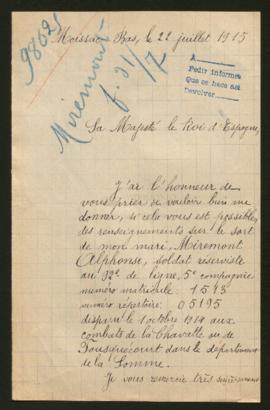 9862
Moissac Bas, le 22 juillet 1915
Miremont
f. 31/7
A
Pedir informes
Que se hace así
Devolver
Sa Majesté le Roi d'Espagne,
J'ai l'honneur de
vous prier de vouloir bien me
donner, si cela vous est possible,
des renseignements sur le sort
de mon mari, Miremont
Alphonse, soldat réserviste
au de ligne, 5e compagnie
numéro matricule: 1513
numéro répertoire: 05195
disparu le 1 octobre 1914 aux
combats de la Chavatte ou de
Fouquescourt dans le département
de la Somme.
Je vous remercie très